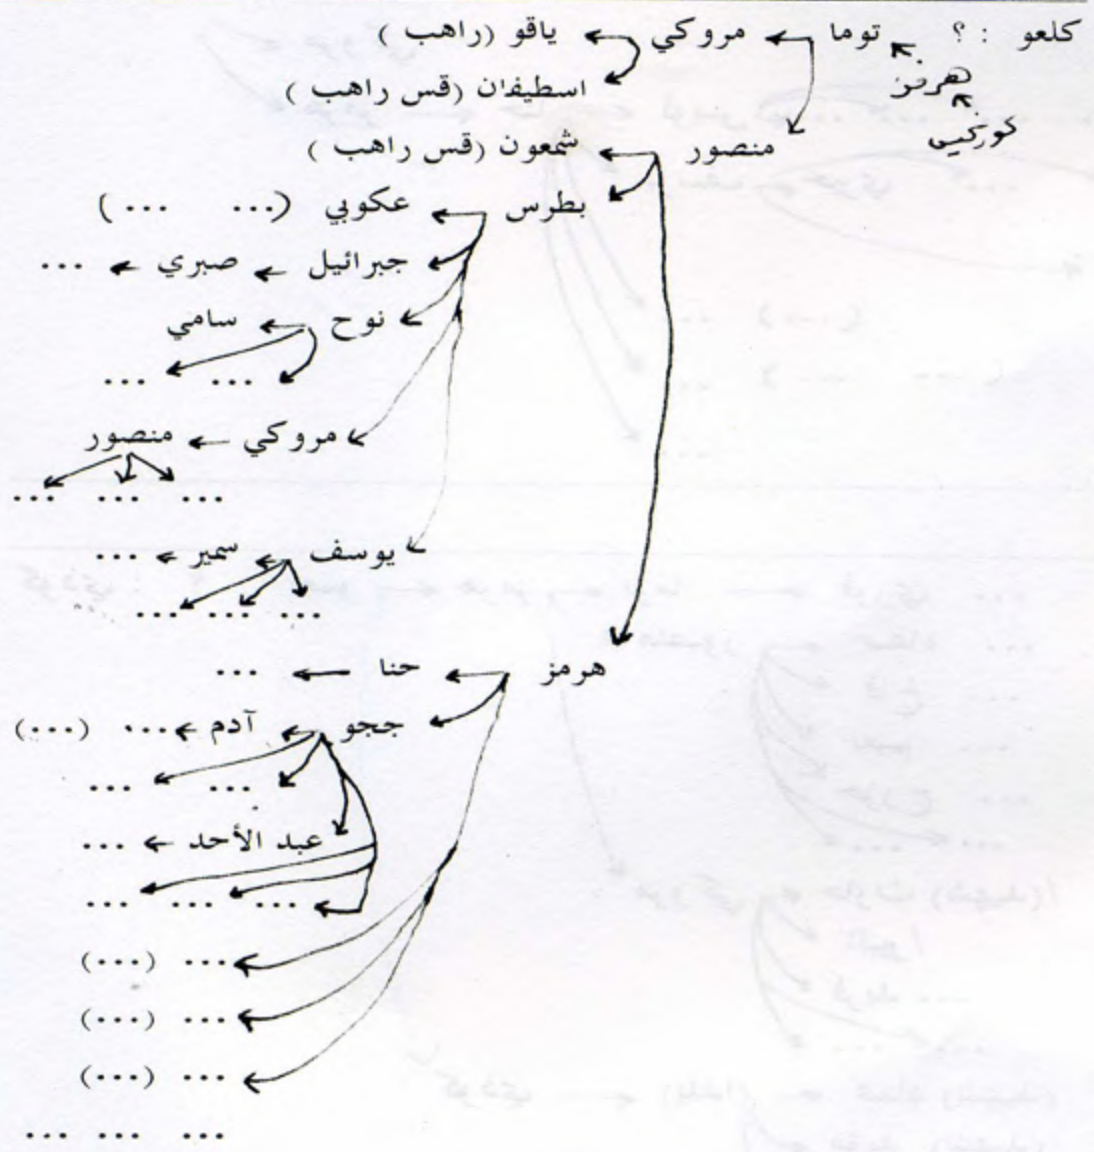 كلعو : ؟ توما مروكي ياقو (راهب)
هرمز اسطيفان (قس راهب)
كوركيس
منصور شمعون (قس راهب)
بطرس عكوبي (... ...)
جبرائيل صبري ...
نوح سامي
... ...
مروكي منصور
... ... ...
يوسف سمير ...
... ... ...
هرمز حنا ...
ججو آدم ... (...)
... ...
عبد الأحد ...
... ... ...
... (...)
... (...)
... (...)
... ... ...